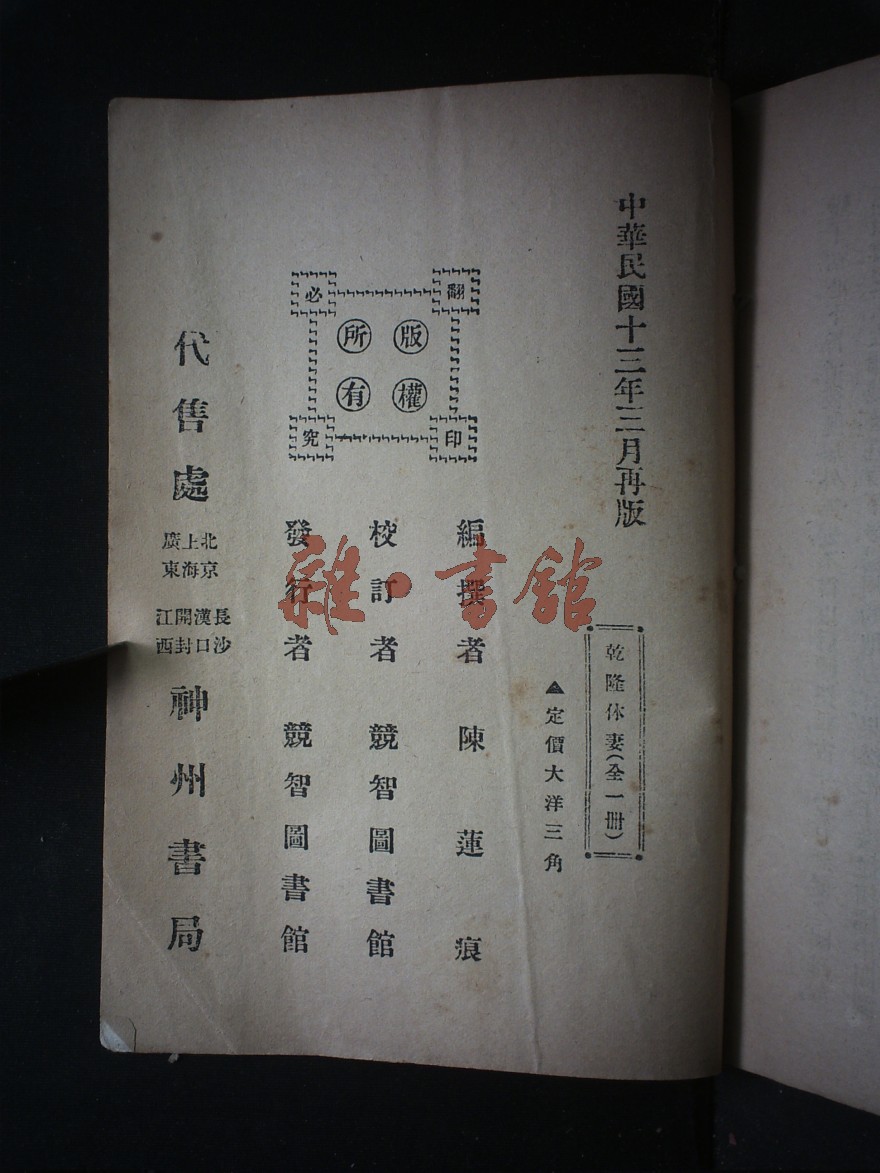 中華民國十三年三月再版
乾隆休妻(全一冊)
▲定價大洋三角
編撰者 陳蓮痕
校訂者 競智圖書館
發行者 競智圖書館
版權所有
翻印必究
代售處 北京 上海 廣東 長沙 漢口 開封 江西 神州書局
雜·書館